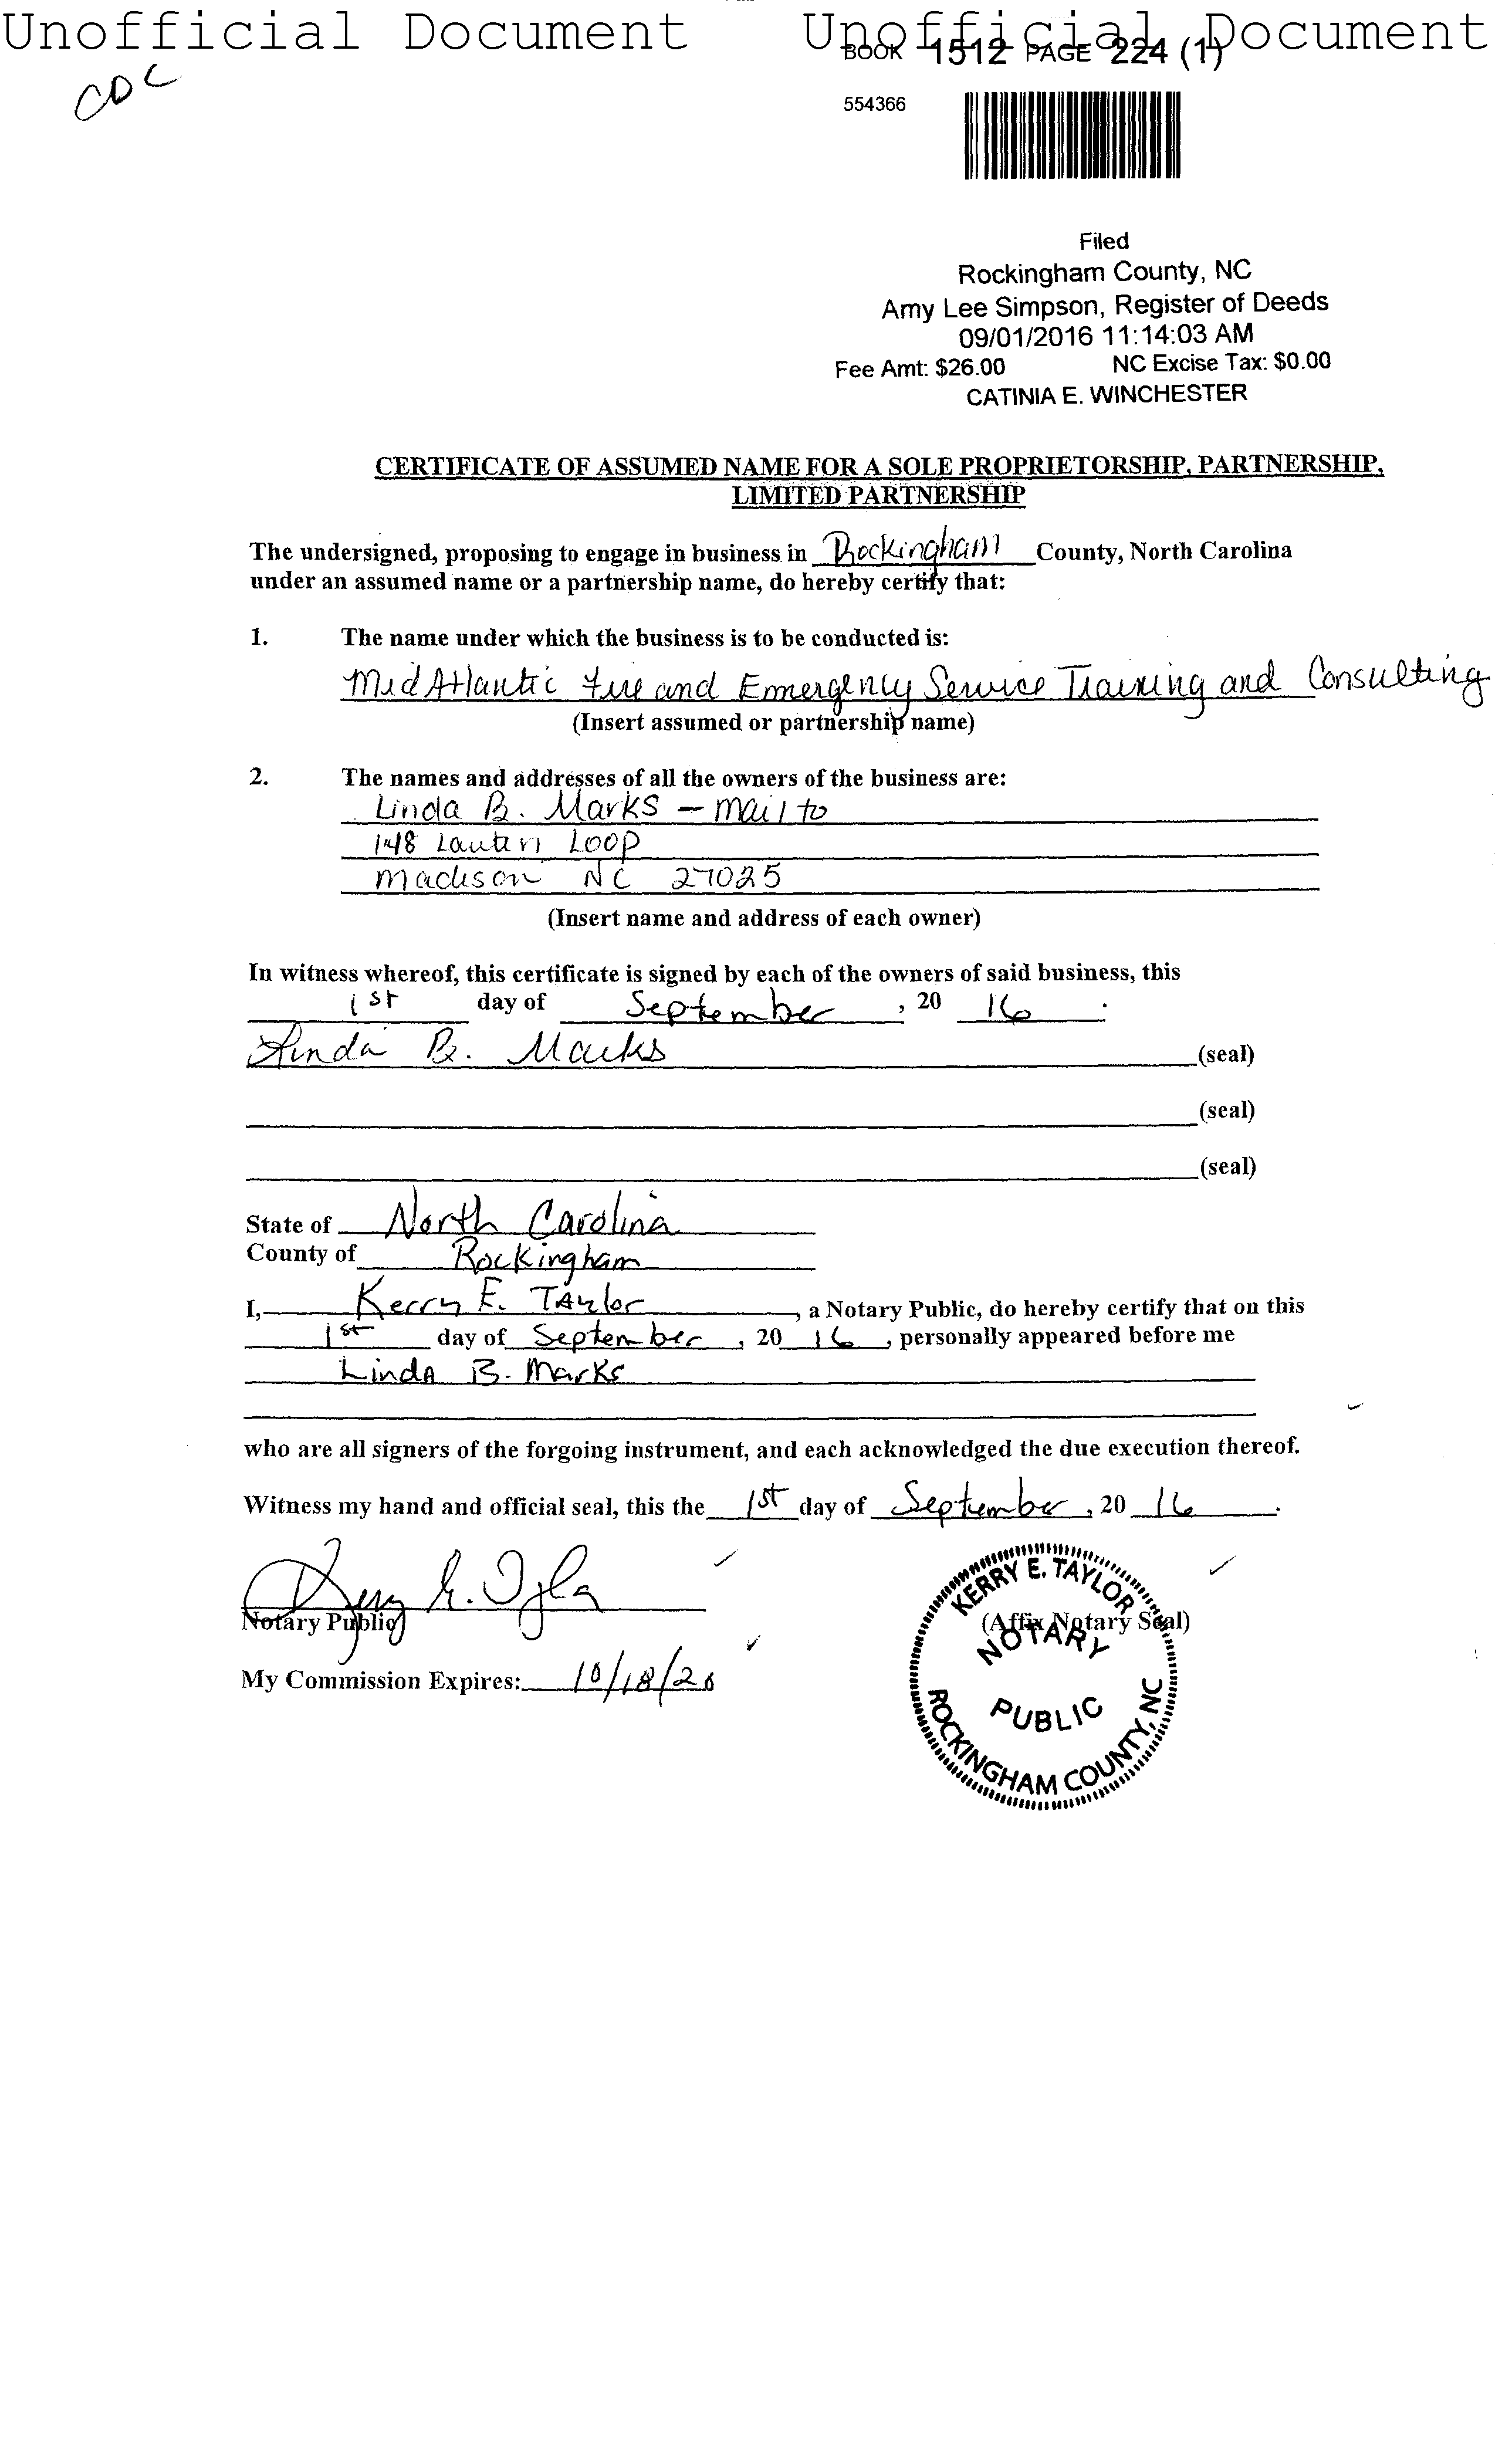 Unofficial Document Unofficial Document
BOOK 1512 PAGE 224 (1)
CDC
554366
Filed
Rockingham County, NC
Amy Lee Simpson, Register of Deeds
09/01/2016 11:14:03 AM
Fee Amt: $26.00 NC Excise Tax: $0.00
CATINIA E. WINCHESTER
CERTIFICATE OF ASSUMED NAME FOR A SOLE PROPRIETORSHIP, PARTNERSHIP,
LIMITED PARTNERSHIP
The undersigned, proposing to engage in business in Rockingham County, North Carolina
under an assumed name or a partnership name, do hereby certify that:
1. The name under which the business is to be conducted is:
Mid Atlantic Fire and Emergency Service Training and Consulting
(Insert assumed or partnership name)
2. The names and addresses of all the owners of the business are:
Linda B. Marks - mail to
148 Loop
Madison NC 27025
(Insert name and address of each owner)
In witness whereof, this certificate is signed by each of the owners of said business, this
1st day of September, 20 16.
Linda B. Marks (seal)
(seal)
(seal)
State of North Carolina
County of Rockingham
I, Kerry E. Taylor, a Notary Public, do hereby certify that on this
1st day of September, 20 16, personally appeared before me
Linda B. Marks
who are all signers of the forgoing instrument, and each acknowledged the due execution thereof.
Witness my hand and official seal, this the 1st day of September, 20 16.
Notary Public
(Affix Notary Seal)
My Commission Expires: 10/18/20
KERRY E. TAYLOR
NOTARY
PUBLIC
ROCKINGHAM COUNTY, NC